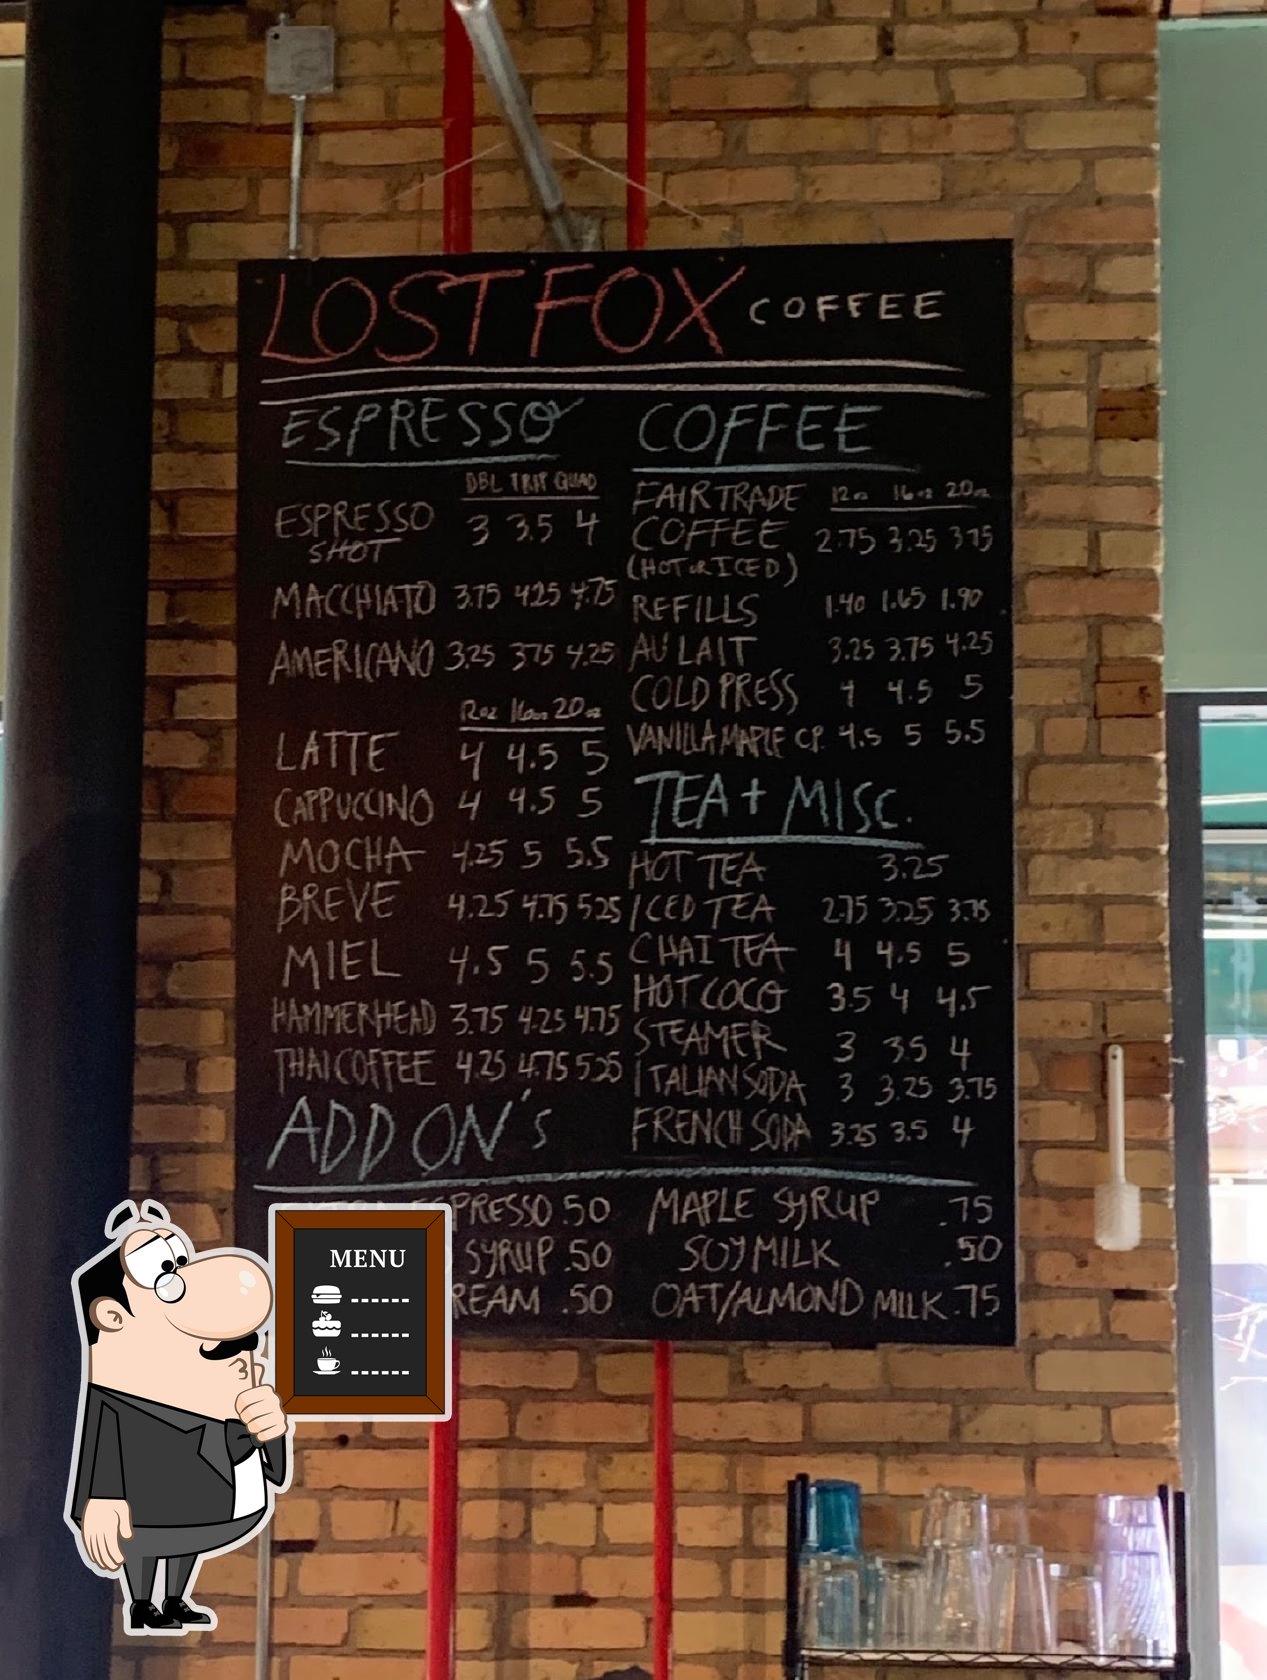 LOST FOX COFFEE
ESPRESSO
DBL TRIP QUAD
ESPRESSO SHOT 3 3.5 4
MACCHIATO 3.75 4.25 4.75
AMERICANO 3.25 3.75 4.25
12oz 16oz 20oz
LATTE 4 4.5 5
CAPPUCCINO 4 4.5 5
MOCHA 4.25 5 5.5
BREVE 4.25 4.75 5.25
MIEL 4.5 5 5.5
HAMMERHEAD 3.75 4.25 4.75
THAI COFFEE 4.25 4.75 5.25
COFFEE
12oz 16oz 20oz
FAIR TRADE
COFFEE 2.75 3.25 3.75
(HOT or ICED)
REFILLS 1.40 1.65 1.90
AU LAIT 3.25 3.75 4.25
COLD PRESS 4 4.5 5
VANILLA MAPLE CP. 4.5 5 5.5
TEA + MISC.
HOT TEA 3.25
ICED TEA 2.75 3.25 3.75
CHAI TEA 4 4.5 5
HOT COCO 3.5 4 4.5
STEAMER 3 3.5 4
ITALIAN SODA 3 3.25 3.75
FRENCH SODA 3.25 3.5 4
ADD ON'S
PRESSO .50
SYRUP .50
REAM .50
MAPLE SYRUP .75
SOY MILK .50
OAT/ALMOND MILK .75
MENU